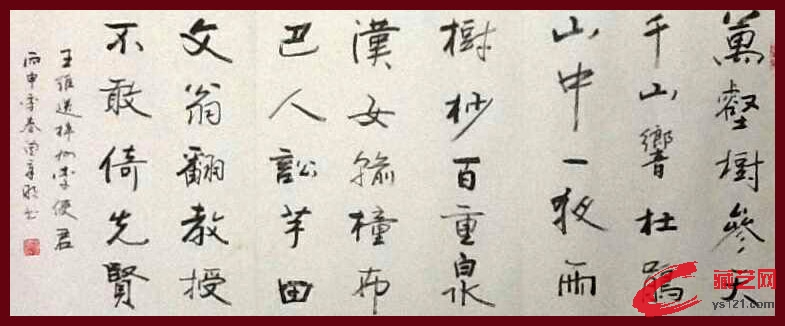 萬壑樹參天
千山響杜鵑
山中一夜雨
樹杪百重泉
漢女輸橦布
巴人訟芋田
文翁翻教授
不敢倚先賢
王維送梓州李使君
丙申季春
藏艺网
ys121.com